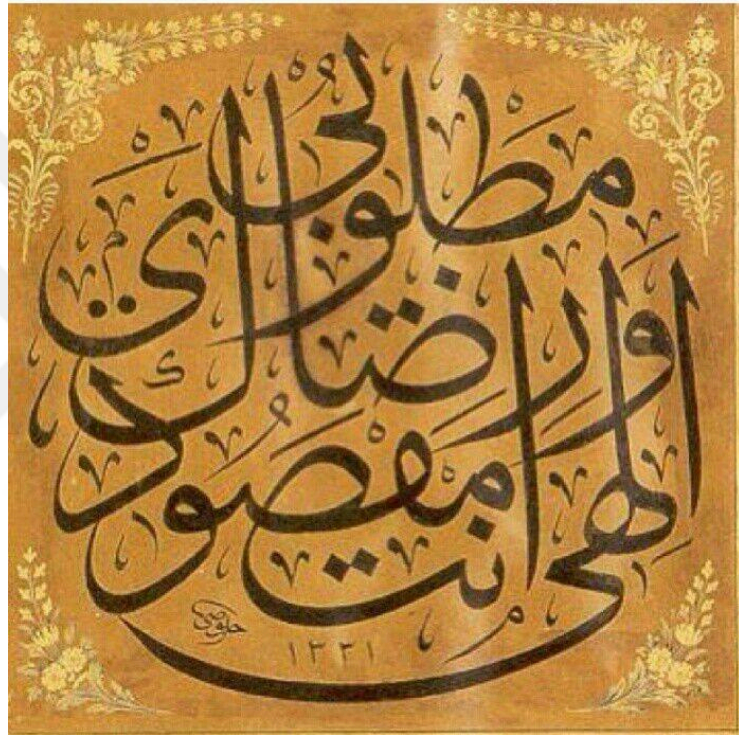 الهي انت مقصودي
ورضاك مطلوبي
خلوصي
١٣٣١